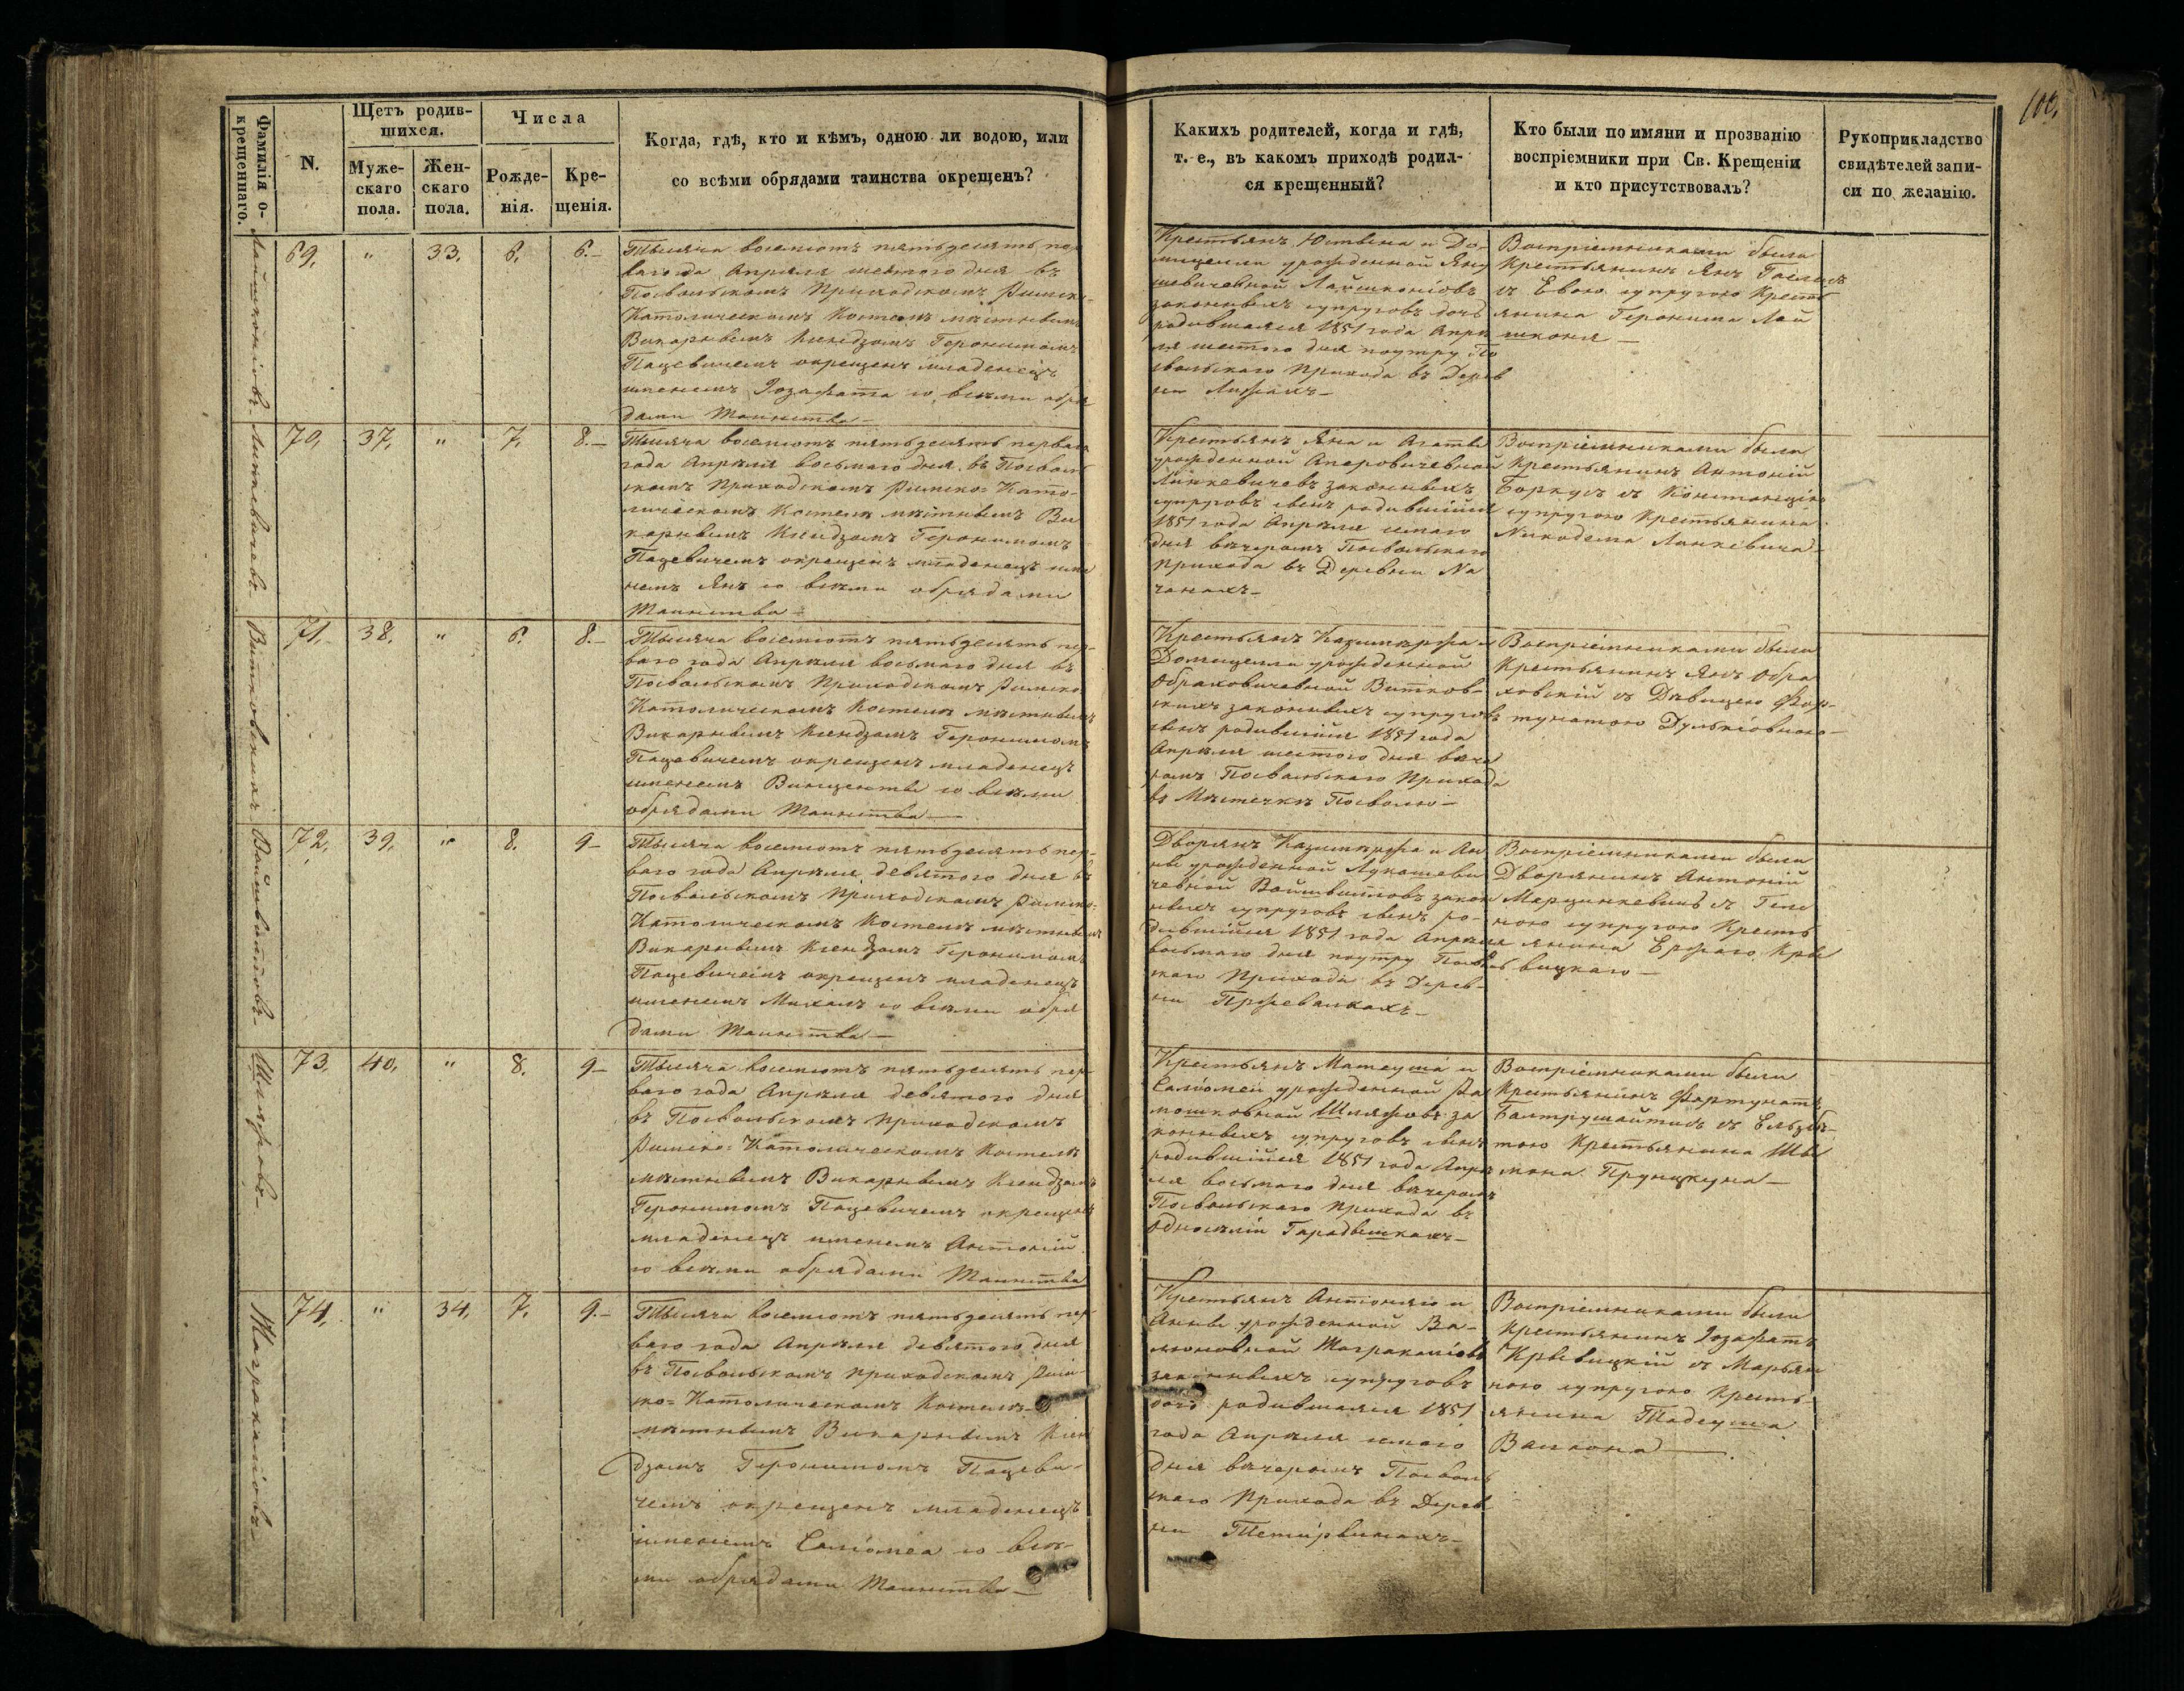 100.
Фамилія о-
крещеннаго.
N.
Щетъ родив-
шихся.
Муже-
скаго
пола.
Жен-
скаго
пола.
Числа
Рожде-
нія.
Кре-
щенія.
Когда, гдѣ, кто и кѣмъ, одною ли водою, или
со всѣми обрядами таинства окрещенъ?
Какихъ родителей, когда и гдѣ,
т. е., въ какомъ приходѣ родил-
ся крещенный?
Кто были по имяни и прозванію
воспріемники при Св. Крещеніи
и кто присутствовалъ?
Рукоприкладство
свидѣтелей запи-
си по желанію.
69. " 33. 6. 6.–
Тысяча восемсотъ пятьдесятъ пер-
ваго года Апрѣля шестого дня въ
Посвольскомъ Приходскомъ Римско-
Католическомъ Костелѣ мѣстнымъ
Викарнымъ Ксендзомъ Геронимомъ
Пацевичемъ окрещенъ младенецъ
именемъ Іозафата со всѣми обря
дами Таинства –
Крестьянъ Юстина и До-
мицелли урожденной Яну
шевичевной Лайшконіовъ
законныхъ супруговъ дочь
родившаяся 1851 года Апрѣ
ля шестого дня поутру По
свольскаго Прихода въ Дерев
ни
Воспріемниками были
Крестьянинъ Янъ
съ Евою супругою Кресть
янина Геронима Лай
шконя –
Линкевичевъ.
70. 37. " 7. 8.–
Тысяча восемсотъ пятьдесятъ перваго
года Апрѣля восьмаго дня въ Посволь
скомъ Приходскомъ Римско-Като-
лическомъ Костелѣ мѣстнымъ Ви
карнымъ Ксендзомъ Геронимомъ
Пацевичемъ окрещенъ младенецъ име
немъ Янъ со всѣми обрядами
Таинства –
Крестьянъ Яна и Агаты
урожденной
Линкевичевъ законныхъ
супруговъ сынъ родившійся
1851 года Апрѣля семаго
дня вечеромъ Посвольскаго
Прихода въ Деревни На
Воспріемниками были
Крестьянинъ Антоній
Боркусъ съ Констанціею
супругою Крестьянина
Никодема Линкевича –
Витковскихъ
71. 38. " 6. 8.–
Тысяча восемсотъ пятьдесятъ пер-
ваго года Апрѣля восьмаго дня въ
Посвольскомъ Приходскомъ Римско
Католическомъ Костелѣ мѣстнымъ
Викарнымъ Ксендзомъ Геронимомъ
Пацевичемъ окрещенъ младенецъ
именемъ Винценты со всѣми
обрядами Таинства –
Крестьянъ Казимѣржа и
Домицелли урожденной
Обраховичевной Витков-
скихъ законныхъ супруговъ
сынъ родившійся 1851 года
Апрѣля шестого дня вече
ромъ Посвольскаго Прихода
въ Мѣстечкѣ Посволю –
Воспріемниками были
Крестьянинъ Янъ Обра
ховскій съ Дѣвицею Фор-
тунатою Дулькіовною –
Войшвиттовъ –
72. 39. " 8. 9–
Тысяча восемсотъ пятьдесятъ пер-
ваго года Апрѣля девятого дня въ
Посвольскомъ Приходскомъ Римско-
Католическомъ Костелѣ мѣстнымъ
Викарнымъ Ксендзомъ Геронимомъ
Пацевичемъ окрещенъ младенецъ
именемъ Михалъ со всѣми обря
дами Таинства –
Дворянъ Казимѣржа и Ан
ны урожденной Лукашеви
чевной Войшвиттовъ закон
ныхъ супруговъ сынъ ро-
дившійся 1851 года Апрѣля
восьмаго дня поутру Посволь
скаго Прихода въ Дерев-
ни
Воспріемниками были
Дворянинъ Антоній
Марцинкевичъ съ Геле
ною супругою Кресть
янина Ержаго Кры
вицкаго –
Шляжовъ –
73. 40. " 8. 9–
Тысяча восемсотъ пятьдесятъ пер-
ваго года Апрѣля девятого дня
въ Посвольскомъ Приходскомъ
Римско-Католическомъ Костелѣ
мѣстнымъ Викарнымъ Ксендзомъ
Геронимомъ Пацевичемъ окрещенъ
младенецъ именемъ Антоній
со всѣми обрядами Таинства
Крестьянъ Матеуша и
Саломеи урожденной Ра
мошковной Шляжовъ за
конныхъ супруговъ сынъ
родившійся 1851 года Апрѣ
ля восьмаго дня вечеромъ
Посвольскаго Прихода въ
Односеліи Гарадышкахъ –
Воспріемниками были
Крестьянинъ Фортунатъ
Балтрушайтисъ съ Ельзбѣ-
тою Крестьянина Шы
мона Прунцкуна –
74. " 34. 7. 9.–
Тысяча восемсотъ пятьдесятъ пер-
ваго года Апрѣля девятого дня
въ Посвольскомъ Приходскомъ Рим-
ско-Католическомъ Костелѣ
мѣстнымъ Викарнымъ Ксен
дзомъ Геронимомъ Пацеви-
чемъ окрещенъ младенецъ
именемъ Саломеа со всѣ-
ми обрядами Таинства –
Крестьянъ Антоняго и
Анны урожденной Ва-
люновной
законныхъ супруговъ
дочь родившаяся 1851
года Апрѣля семаго
дня вечеромъ Посволь
скаго Прихода въ Дерев
ни Тетирвинахъ –
Воспріемниками были
Крестьянинъ Іозафатъ
Крывицкій съ Марьян
ною супругою Кресть-
янина Тадеуша